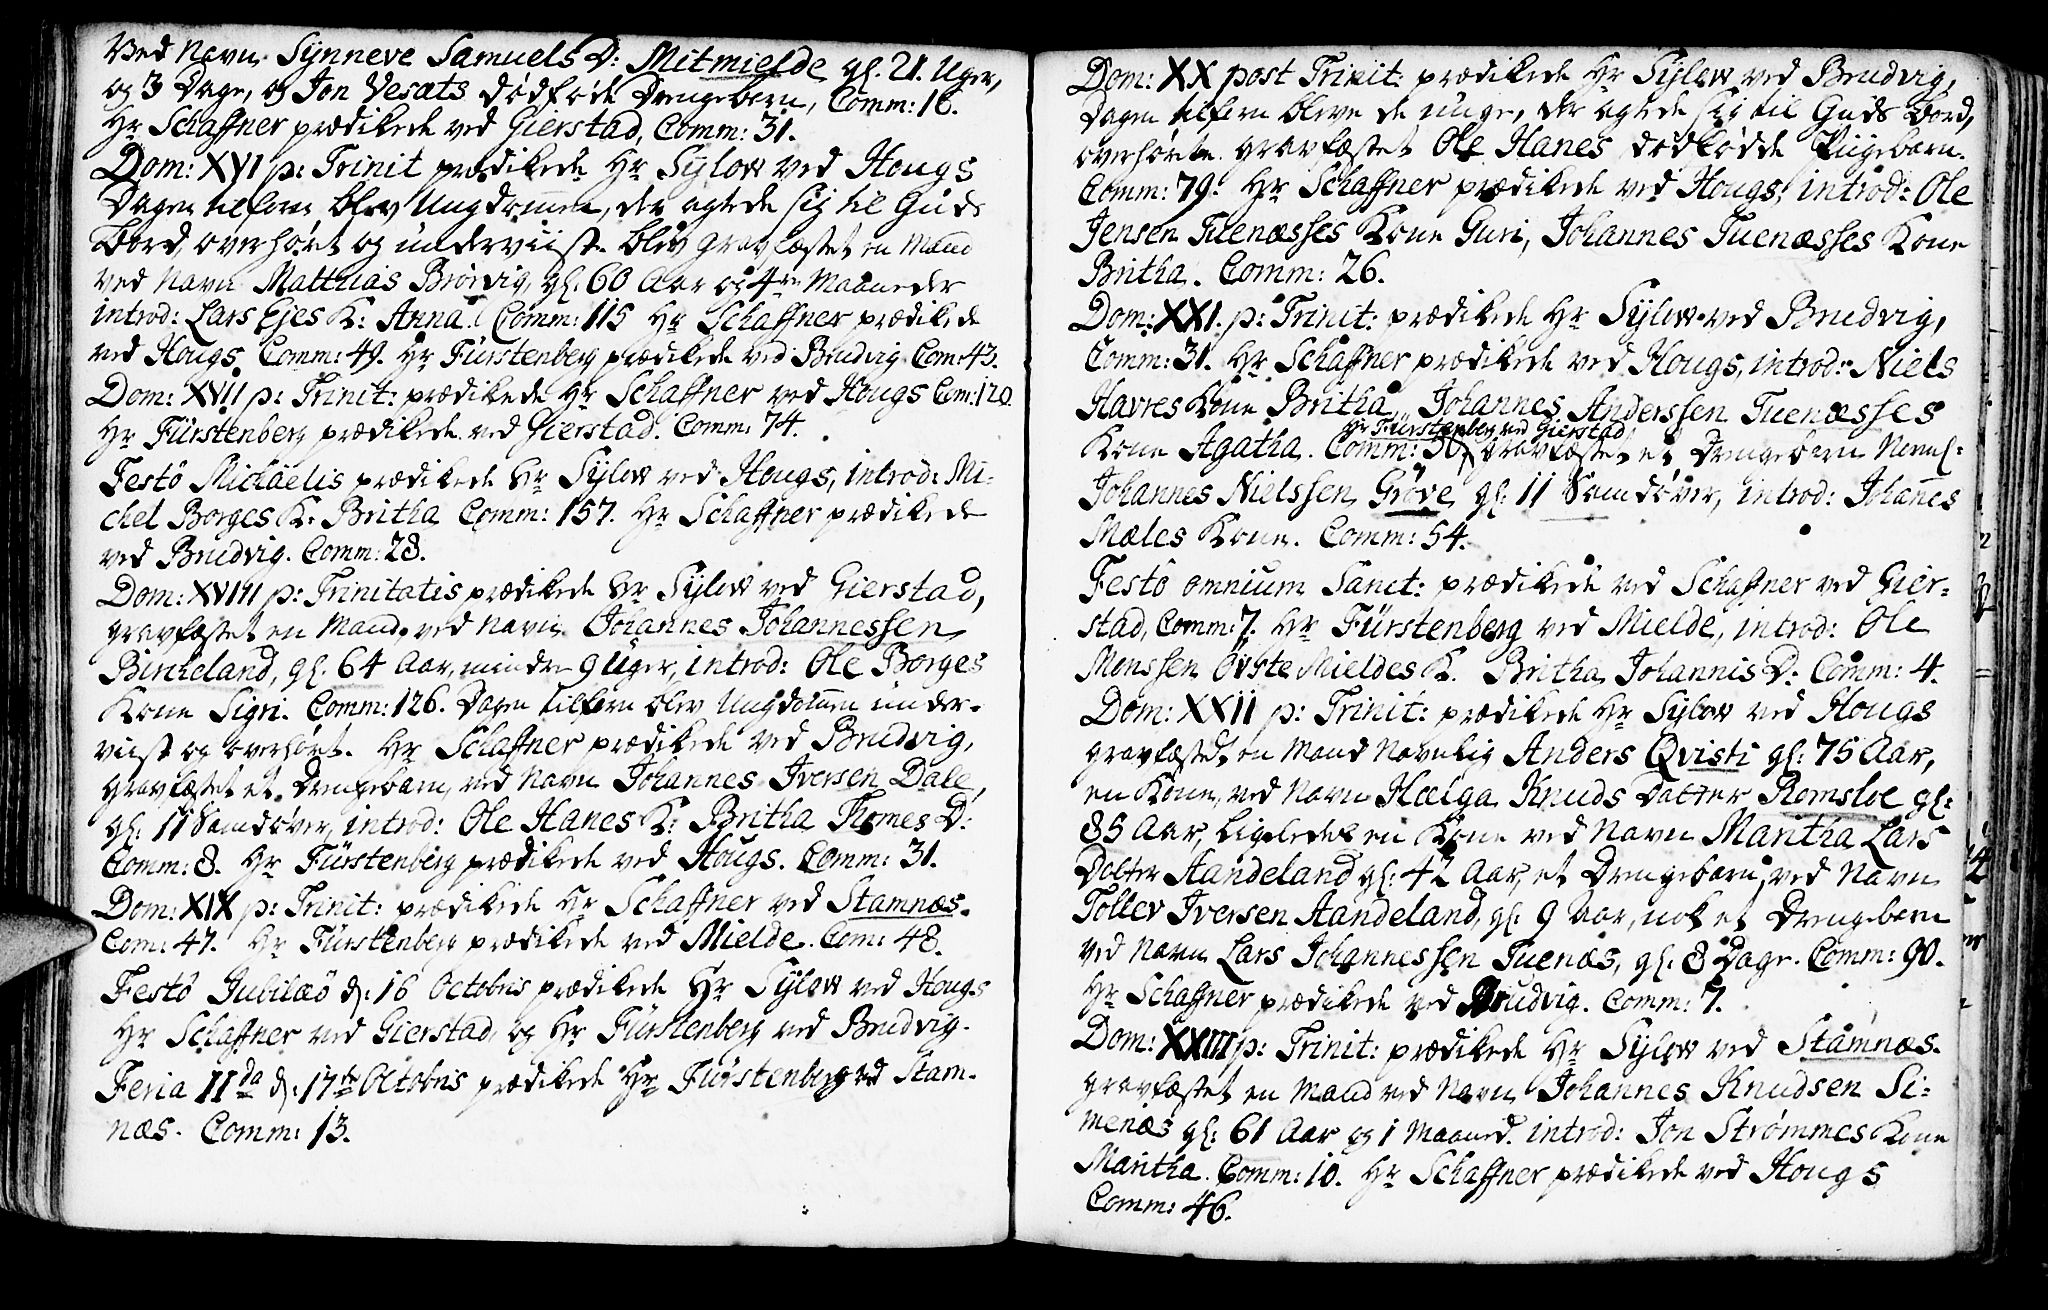 Ved Navn Synneve Samuels D: Mitmielde gl. 21. Uger,
og 3 Dage, og Jon Vesæts dødføde Drengebarn, Comm: 16.
Hr Schaffner prædikede ved Gierstad, Comm: 31.
Dom: XVI p: Trinit prædikede Hr Sylow ved Hougs
Dagen tilforn blev Ungdommen, der agtede sig til Guds
Bord, overhørt og underviist. blev gravfæstet en Mand
ved Navn Matthias Brørvig, gl. 60 Aar og 4re Maaneder
introd: Lars Ejes K: Anna. Comm: 115 Hr Schaffner prædikede
ved Hougs. Comm: 49. Hr Fürstenberg prædikede ved Brudvig Com: 43.
Dom: XVII p: Trinit: prædikede Hr Schaffner ved Hougs Com: 120
Hr Fürstenberg prædikede ved Gierstad. Comm: 74.
Festo Michaelis prædikede Hr Sylow ved Hougs, introd: Mi-
chel Borges K. Britha Comm: 157. Hr Schaffner prædikede
ved Brudvig. Comm: 28.
Dom: XVIII p: Trinitatis prædikede Hr Sylow ved Gierstad,
gravfæstet en Mand, ved Navn Johannes Johannessen
Bircheland, gl. 64 Aar, mindre 9 Uger, introd: Ole Borges
Kone Sigri. Comm: 126. Dagen tilforn blev Ungdommen under-
viist og overhørt. Hr Schaffner prædikede ved Brudvig,
gravfæstet et Drengebarn, ved Navn Johannes Iversen Dale,
gl. 11 Samdøver, introd: Ole Hanes K: Britha Thomes D:
Comm: 8. Hr Fürstenberg prædikede ved Hougs. Comm: 31.
Dom: XIX p: Trinit: prædikede Hr Schaffner ved Stamnæs.
Com: 47. Hr Fürstenberg prædikede ved Mielde. Com: 48.
Festo Jubilæo d: 16 Octobris prædikede Hr Sylow ved Hougs
Hr Schaffner ved Gierstad, og Hr Fürstenberg ved Brudvig.
Feria IIda d: 17de Octobris prædikede Hr Fürstenberg ved Stam-
næs. Comm: 13.
Dom: XX post Trinit: prædikede Hr Sylow ved Brudvig,
Dagen tilforn bleve de unge, der agtede sig til Guds Bord,
overhørte. gravfæstet Ole Hanes dødfødde Piigebarn.
Comm: 79. Hr Schaffner prædikede ved Hougs, introd: Ole
Jensen Tuenæsses Kone Guri, Johannes Tuenæsses Kone
Britha. Comm: 26.
Dom: XXI. p: Trinit: prædikede Hr Sylow ved Brudvig,
Comm: 31. Hr Schaffner prædikede ved Hougs, introd: Niels
Havres Kone Britha, Johannes Anderssen Tuenæsses
Hr Fürstenberg ved Gierstad
Kone Agatha. Comm: 30, gravfæstet et Drengebarn Navnl:
Johannes Nielssen Grøve gl: 11 Samdøver, introd: Johanes
Mæles Kone. Comm: 54.
Festo omnium Sanct: prædikede ved Schaffner ved Gier-
stad, Comm: 7. Hr Fürstenberg ved Mielde, introd: Ole
Monssen Øvste Mieldes K. Britha Johannis D: Comm: 4.
Dom: XXII p: Trinit: prædikede Hr Sylow ved Hougs
gravfæstet en Mand Navnlig Anders Qvisti gl: 75 Aar,
en Kone, ved Navn Hælga Knuds Datter Romsloe gl:
85 Aar, ligeledes en Kone ved Navn Maritha Lars
Dotter Aandeland gl: 42 Aar, et Drengebarn, ved Navn
Tollev Iversen Aandeland, gl. 9 Aar, nok et Drengebarn
ved Navn Lars Johannessen Tuenæs, gl. 8 Dage. Comm: 90.
Hr Schaffner prædikede ved Brudvig. Comm: 7.
Dom: XXIII p: Trinit: prædikede Hr Sylow ved Stamnæs.
gravfæstet en Mand ved Navn Johannes Knudsen Si-
menæs gl: 61 Aar og 1 Maaned. introd: Jon Strømmes Kone
Maritha. Comm: 10. Hr Schaffner prædikede ved Hougs
Comm: 46.